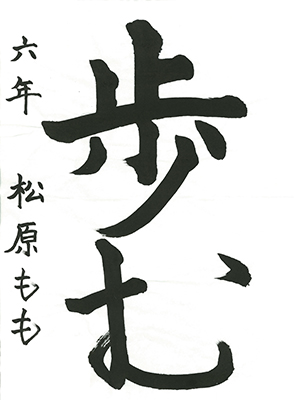 歩む
六年 松原もも